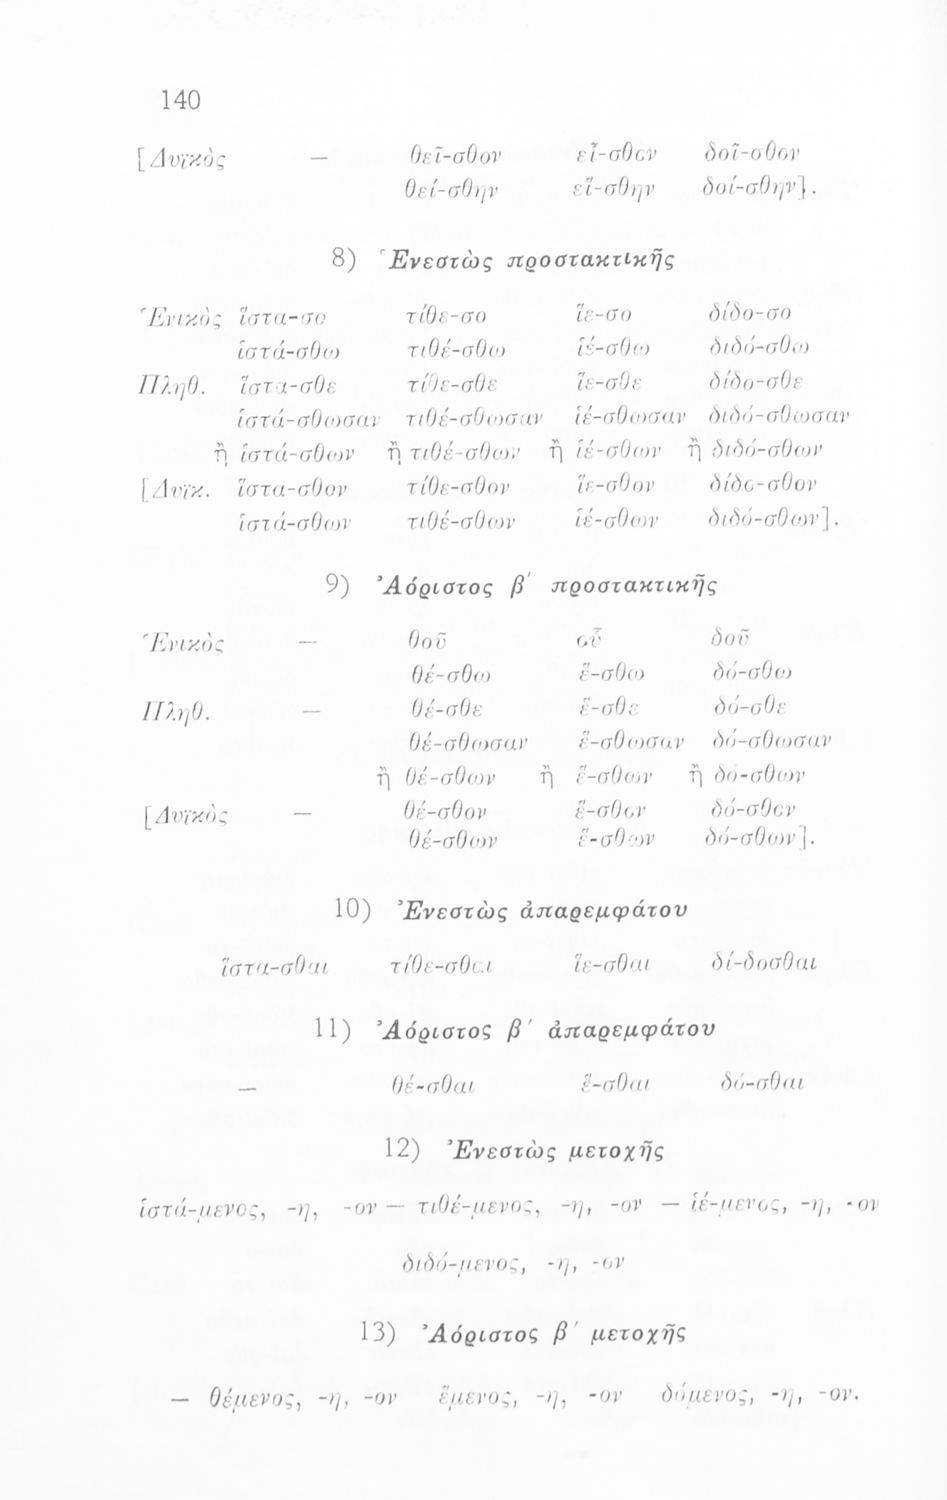 140
[Δυϊκὸς — θεῖ-σθον εἶ-σθον δοῖ-σθον
θεί-σθην εἵ-σθην δοί-σθην].
8) Ἐνεστὼς προστακτικῆς
Ἑνικὸς ἵστα-σο τίθε-σο ἵε-σο δίδο-σο
ἱστά-σθω τιθέ-σθω ἱέ-σθω διδό-σθω
Πληθ. ἵστα-σθε τίθε-σθε ἵε-σθε δίδο-σθε
ἱστά-σθωσαν τιθέ-σθωσαν ἱέ-σθωσαν διδό-σθωσαν
ἢ ἱστά-σθων ἢ τιθέ-σθων ἢ ἱέ-σθων ἢ διδό-σθων
[Δυϊκ. ἵστα-σθον τίθε-σθον ἵε-σθον δίδο-σθον
ἱστά-σθων τιθέ-σθων ἱέ-σθων διδό-σθων].
9) Ἀόριστος β΄ προστακτικῆς
Ἑνικὸς — θοῦ οὗ δοῦ
θέ-σθω ἕ-σθω δό-σθω
Πληθ. — θέ-σθε ἕ-σθε δό-σθε
θέ-σθωσαν ἕ-σθωσαν δό-σθωσαν
ἢ θέ-σθων ἢ ἕ-σθων ἢ δό-σθων
[Δυϊκὸς — θέ-σθον ἕ-σθον δό-σθον
θέ-σθων ἕ-σθων δό-σθων].
10) Ἐνεστὼς ἀπαρεμφάτου
ἵστα-σθαι τίθε-σθαι ἵε-σθαι δί-δοσθαι
11) Ἀόριστος β΄ ἀπαρεμφάτου
— θέ-σθαι ἕ-σθαι δό-σθαι
12) Ἐνεστὼς μετοχῆς
ἱστά-μενος, -η, -ον — τιθέ-μενος, -η, -ον — ἱέ-μενος, -η, -ον
διδό-μενος, -η, -ον
13) Ἀόριστος β΄ μετοχῆς
— θέμενος, -η, -ον ἕμενος, -η, -ον δόμενος, -η, -ον.